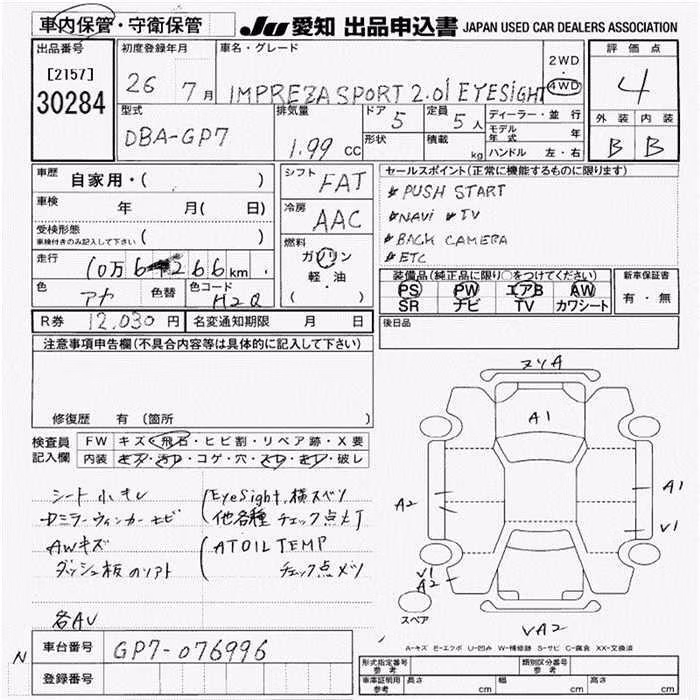 車内保管・守衛保管
JU 愛知 出品申込書 JAPAN USED CAR DEALERS ASSOCIATION
出品番号
[2157]
30284
初度登録年月
26 7月
車名・グレード
IMPREZA SPORT 2.0i EYESIGHT
2WD
・
4WD
評価点
4
外装 内装
B B
型式
DBA-GP7
排気量
1.99 cc
ドア
5
定員
5人
形状
積載
kg
ディーラー・並行
モデル年式 年
ハンドル 左・右
車歴
自家用・( )
車検
年 月( 日)
受検形態
車検付きのみ記入して下さい ( )
走行
10万6 266km
色
アヤ
色替
色コード
H2Q
シフト
FAT
冷房
AAC
燃料
ガソリン
軽・油
( )
セールスポイント(正常に機能するものに限ります)
PUSH START
NAVI TV
BACK CAMERA
ETC
装備品(純正品に限り○をつけてください)
PS PW エアB AW
SR ナビ TV カワシート
新車保証書
有・無
R券 12,030円
名変通知期限 月 日
後日品
注意事項申告欄(不具合内容等は具体的に記入して下さい)
修復歴 有(箇所 )
検査員記入欄
FW キズ・飛石・ヒビ割・リペア跡・X要
内装 キズ・汚れ・コゲ・穴・スレ・キレ・破レ
シート 小キレ
EyeSight,横スベリ
ドミラーウィンカーヒビ
他各種 チェック点灯
AWキズ
ATOIL TEMP
チェック点メツ
ダッシュ板のソフト
各AU
車台番号
GP7-076996
登録番号
N
スリA
A1
A2
A1
V1
V1
A2
スペア
VA2
A-キズ E-エクボ U-凹み W-補修跡 S-サビ C-腐食 XX-交換済
形式指定番号
参考
類別区分番号
参考
車庫証明用
参考
長さ cm
幅 cm
高さ cm